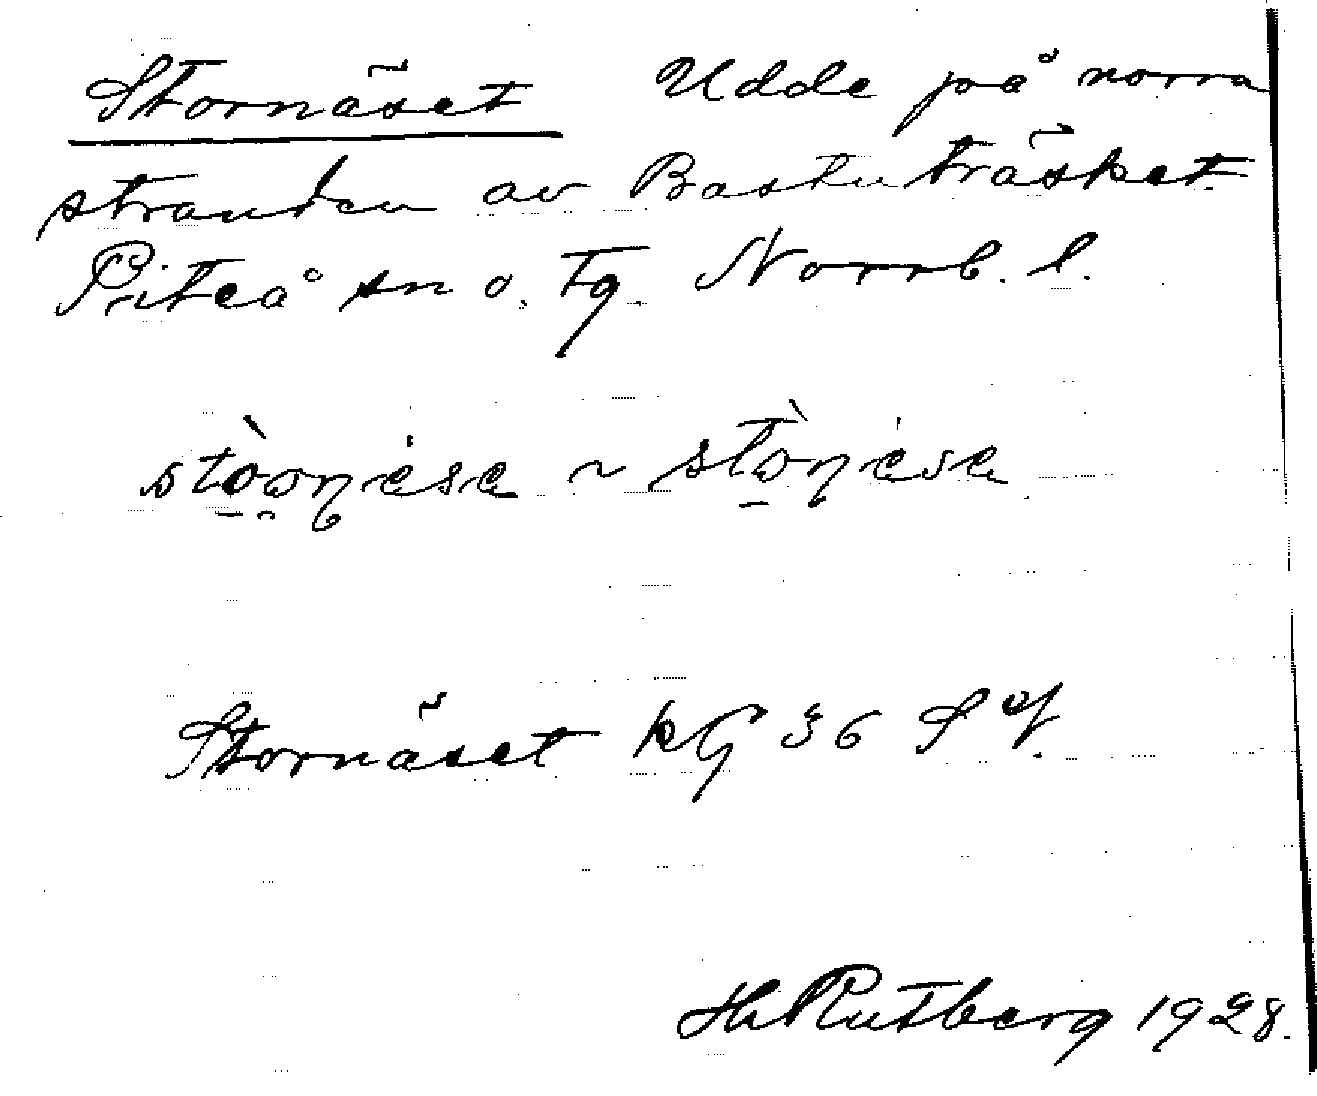 Stornäset Udde på norra
stranden av Bastuträsket
Piteå sn o. tg Norrb. l.
~
Stornäset kG 36 SV.
Hj Rutberg 1928.